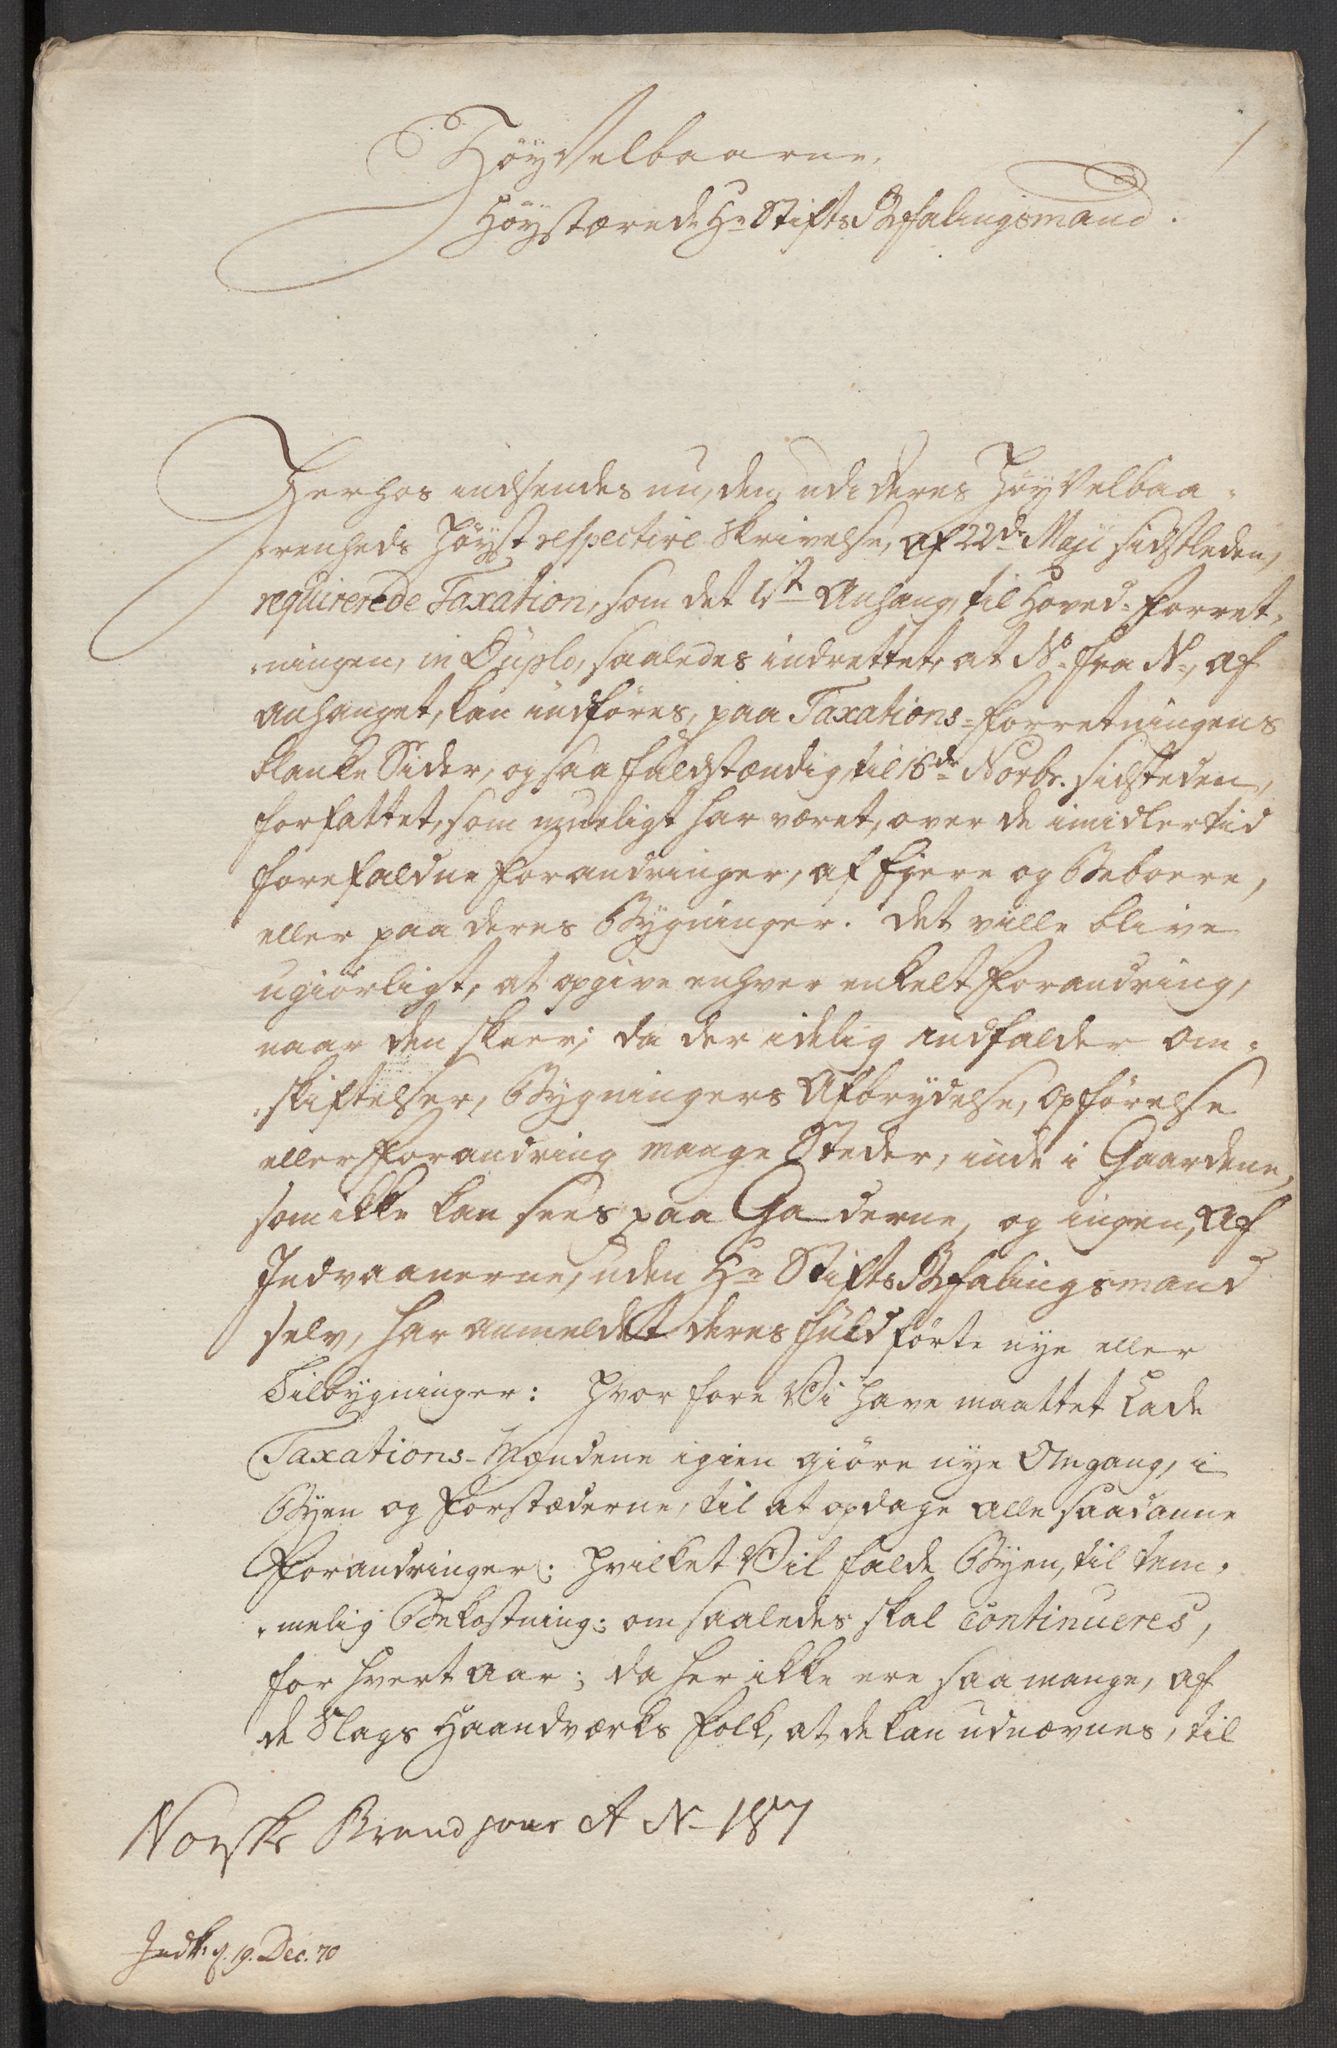 HøyVelbaarne,
Høystærede Hr StiftsBefalingsmand.
Herhos indsendes nu, den, udi deres HøyVelbaa-
renheds Høyst respective Skrivelse, af 22de Maji sidstleden,
requirerede Taxation, som det 1ste Anhang, til Hoved-Forret-
ningen, in Duplo, saaledes indrettet, at No fra No, af
Anhanget, kan indføres, paa Taxations-Forretningens
blanke Sider, og saa fuldstændig, til 16de Novbr. sidsteden,
forfattet, som mueligt har været, over de imidlertid
forefaldne Forandringer, af Ejere og Beboere,
eller paa deres Bygninger. Det ville blive
ugiørligt, at opgive enhver enkelt Forandring,
naar den skeer; da der idelig indfalder Om-
skiftelser, Bygningers Afbrydelse, Opførelse
eller Forandring mange Steder, inde i Gaardene,
som ikke kan sees paa Gaderne, og ingen, Af
Indvaanerne, uden Hr StiftsBefalingsmand
selv, har anmeldet deres fuldførte nye eller
Tilbygninger: Hvorfore Vi have maattet Lade
Taxations-Mændene igien giøre nye Omgang, i
Byen og Forstæderne, til at opdage alle saadanne
Forandringer: Hvilket Vil falde Byen, til tem-
melig Bekostning; om saaledes skal continueres,
for hvert aar; da her ikke ere saa mange, af
de Slags Haandværks Folk, at de kan udnævnes, til
Norske Brand jour A No 187
Indk: d. 19. Dec. 70
1